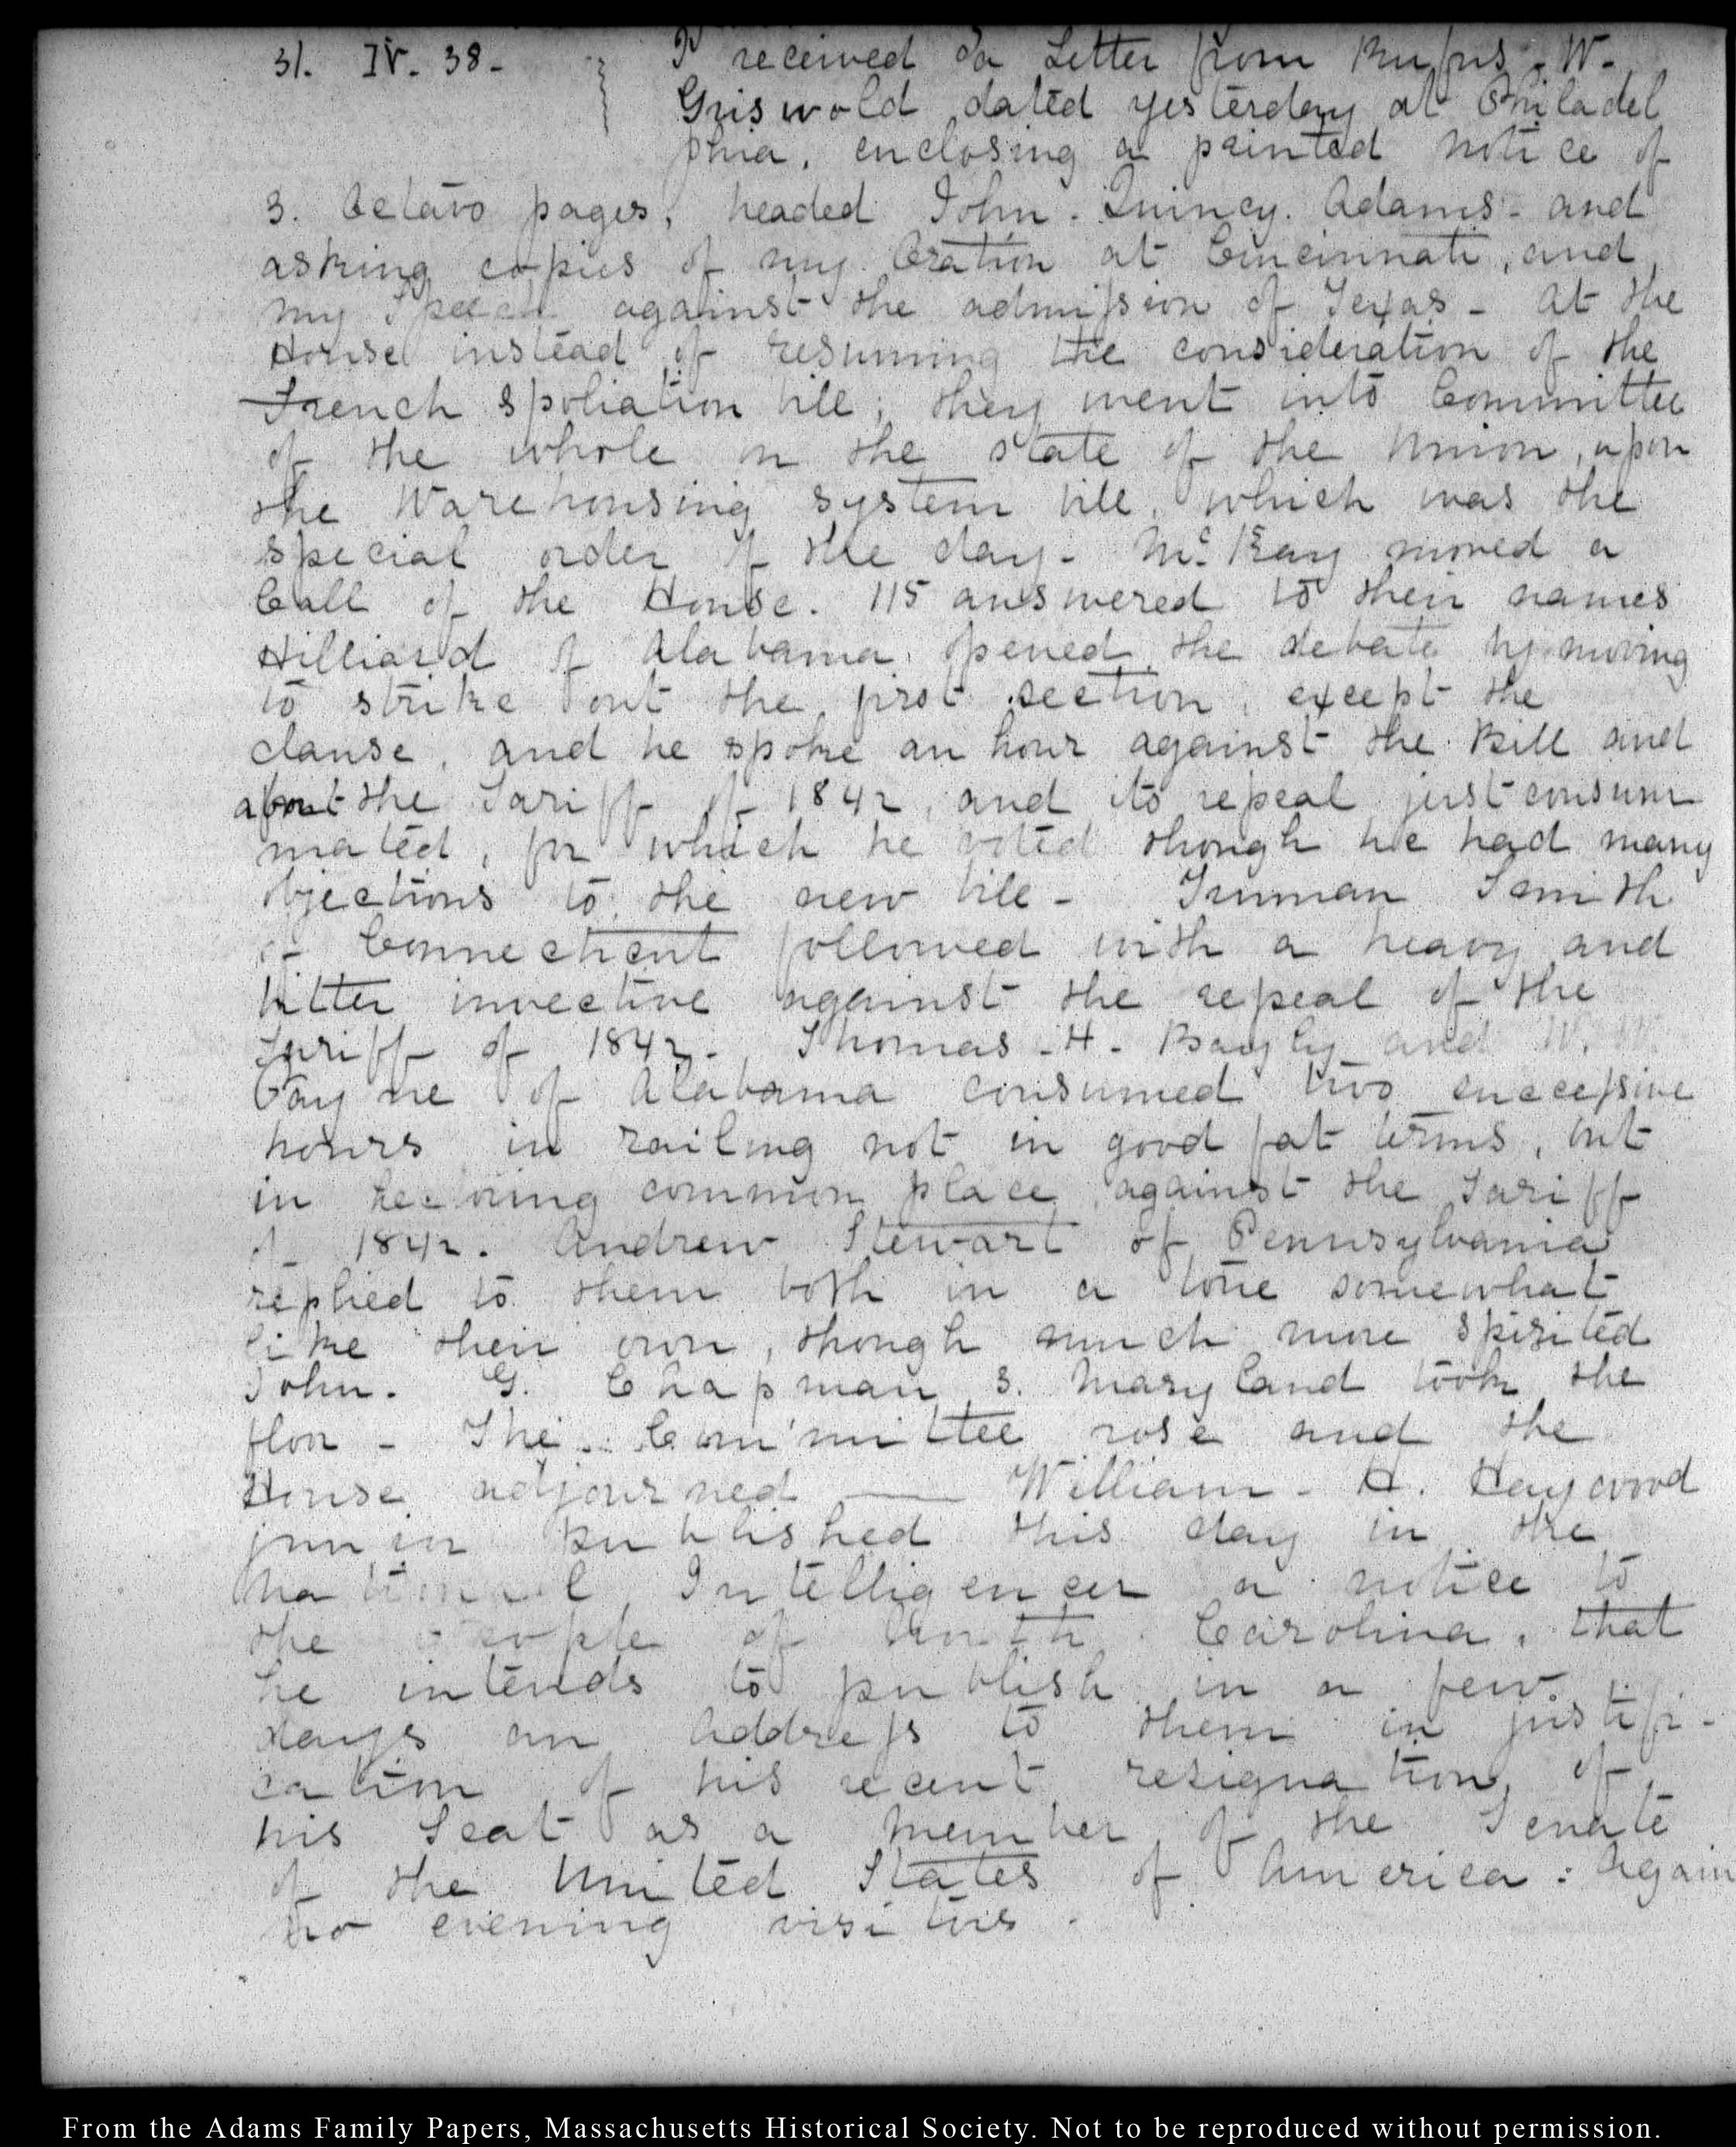 31. IV. 38-
I received a Letter from Rufus. W.
Griswold dated yesterday at Philadel
phia, enclosing a printed notice of
3. Octavo pages, headed John. Quincy. Adams- and
asking copies of my Oration at Cincinnati, and
my Speech against the admission of Texas - At the
House instead of resuming the consideration of the
French spoliation bill; they went into Committee
of the whole on the state of the Union, upon
the Warehousing system bill, which was the
special order of the day- Mc. Kay moved a
Call of the House. 115 answered to their names
Hilliard of Alabama, opened the debate by moving
to strike out the first section, except the
clause, and he spoke an hour against the Bill and
about the Tariff of 1842, and its repeal just consum
mated, for which he voted though he had many
objections to the new bill - Truman Smith
of Connecticut followed with a heavy and
bitter invective against the repeal of the
Tariff of 1842. Thomas. H. Bayly and W. W
Payne of Alabama consumed two successive
hours in railing not in good set terms, but
in common place against the Tariff
of 1842. Andrew Stewart of Pennsylvania
replied to them both in a tone somewhat
like their own, though much more spirited
John. G. Chapman 3. Maryland took the
floor - The Committee rose and the
House adjourned — William. H. Haywood
junior published this day in the
National Intelligencer a notice to
the people of North Carolina, that
he intends to publish in a few
days an address to them in justifi-
cation of his recent resignation, of
his Seat as a member of the Senate
of the United States of America: Again
no evening visitors.
From the Adams Family Papers, Massachusetts Historical Society. Not to be reproduced without permission.